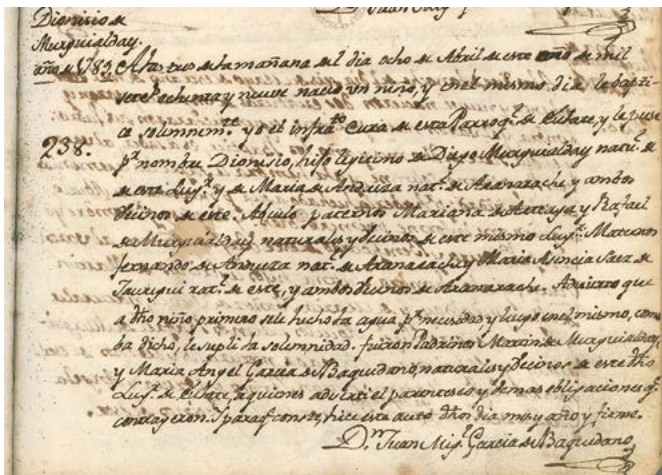 Dionisio de
Murguialday.
año de 1789. A las tres de la mañana del dia ocho de Abril de este año de mil
setec.s ochenta y nueve nacio un niño, y en el mismo dia le bapti-
ce solemnem.te yo el infra.to Cura de esta Parroq.l de Eulate, y le puse
238.
p.r nombre Dionisio, hijo legitimo de Diego Murguialday nat.l de
de este Lug.r y de Maria de Andueza nat.l de Aranarache y ambos
Vecinos de este. Abuelos paternos Mariana de Arteaga y Rafael
de Murguialday naturales y Vecinos de este mismo Lug.r Maternos
fernando de Andueza nat.l de Aranarache y Maria Asencia Saez de
Jauregui nat.l de este, y ambos Vecinos de Aranarache. Advierto que
a dho niño primero se le hecho la agua p.r necesidad y luego en el mismo, como
ba dicho, le supli la solemnidad. fueron Padrinos Martin de Murguialday,
y Maria Angel Garcia de Baquedano, naturales y Vecinos de este dho
Lug.r de Eulate, a quienes adverti el parentesco y demas obligaciones q.e
contrayeron. I para q.e conste, hice este auto dhos dia mes y año y firme.
D.n Juan Mig.l Garcia de Baquedano